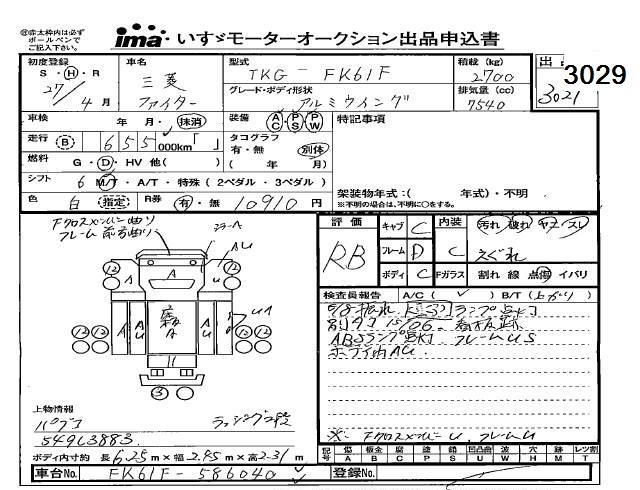 ㊟赤太枠内は必ず
ボールペンで
ご記入下さい。
ima いすゞモーターオークション出品申込書
初度登録
S・H・R
27年 4月
車名
三菱
ファイター
型式
TKG-FK61F
グレード・ボディ形状
アルミウイング
積載(kg)
2700
排気量(cc)
7540
3029
3021
車検 年 月・抹消
装備 AC・PS・PW
特記事項
走行 B 655,000km
タコグラフ
有・無 別体
燃料 G・D・HV 他( )
( 年 月)
シフト 6 M/T・A/T・特殊(2ペダル・3ペダル)
架装物年式:( 年式)・不明
※不明の場合は、不明に○をする。
色 白 指定 R券 有・無 10910円
Fクロスメンバー曲り
フレーム前 曲り
ミラーA
AU
A
12
12
A
AU
A
AU
UA
12
12
12
12
3
評価
RB
キャブ C
フレーム D
ボディ C
内装 汚れ・破れ・ヤニ・スレ
えぐれ
Fガラス 割れ 線 点傷 イバリ
検査員報告 A/C( ✓ ) B/T(上がり)
ランプ 点灯
ABSランプ点灯 フレームUS
ボディ内AU
※ FクロスメンバーU、フレームU
記号
傷 A
板金 B
腐 C
塗 P
錆 S
凹凸曲 U
波 W
穴 H
跡 M
レツ割 T
上物情報
パブコ
ラッシング2段
549L3883
ボディ内寸約 長 6.25m×幅 2.45m×高 2.31m
車台No. FK61F-586040
登録No.